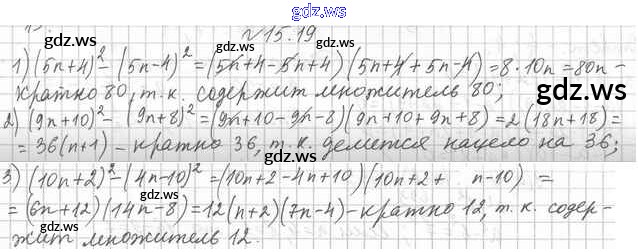 gdz.ws
№15.19
gdz.ws gdz.ws
1) (5n+4)²-(5n-4)²=(5n+4-5n+4)(5n+4+5n-4)=8·10n=80n-
кратно 80, т.к. содержит множитель 80;
2) (9n+10)²-(9n+8)²=(9n+10-9n-8)(9n+10+9n+8)=2(18n+18)=
=36(n+1)-кратно 36, т.к. делится нацело на 36;
3) (10n+2)²-(4n-10)²=(10n+2-4n+10)(10n+2+ n-10) =
=(6n+12)(14n-8)=12(n+2)(7n-4)-кратно 12, т.к. содер-
жит множитель 12.
gdz.ws
gdz.ws
gdz.ws